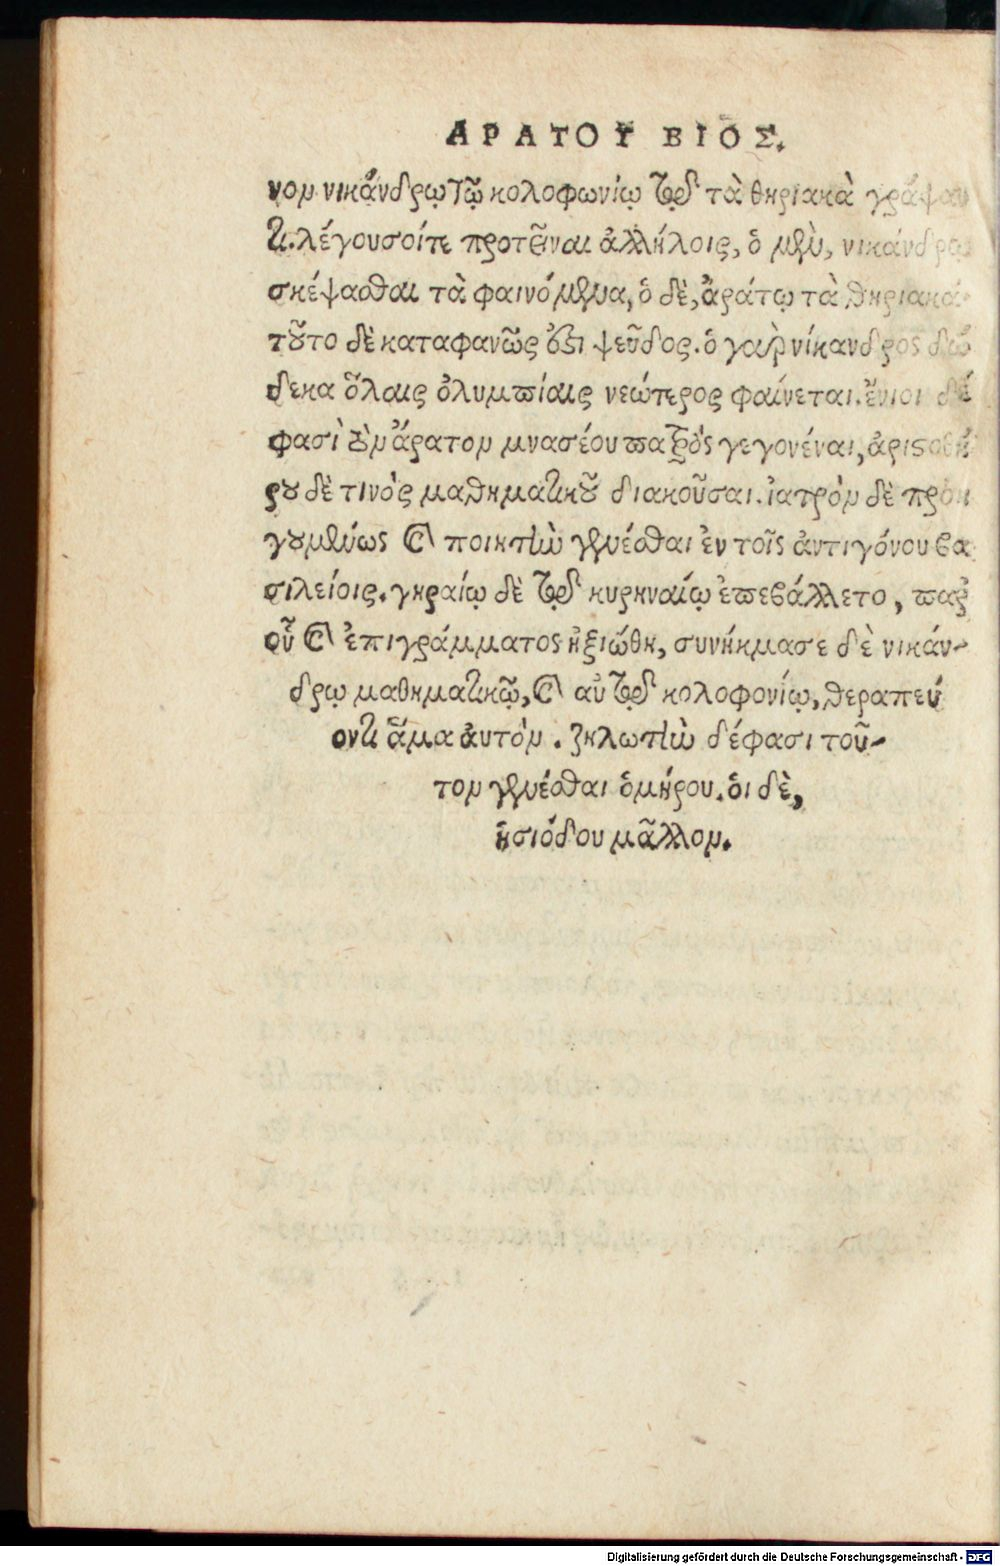 ΑΡΑΤΟΥ ΒΙΟΣ.
νον νικάνδρῳ τῷ κολοφωνίῳ τῷ τὰ θηριακὰ γράψαν
τι. λέγουσοίτε προτεῖναι ἀλλήλοις, ὁ μὲν, νικάνδρῳ
σκέψασθαι τὰ φαινόμενα, ὁ δὲ, ἀράτῳ τὰ θηριακά.
τοῦτο δὲ καταφανῶς ὅτι ψεῦδος. ὁ γὰρ νίκανδρος δώ
δεκα ὅλαις ὀλυμπίαις νεώτερος φαίνεται. ἔνιοι δέ
φασὶ τὸν ἄρατον μνασέου πατρὸς γεγονέναι, ἀριστοθή
ρου δὲ τινὸς μαθηματικοῦ διακοῦσαι. ἰατρὸν δὲ προη
γουμένως καὶ ποιητὴν γενέσθαι ἐν τοῖς ἀντιγόνου βα
σιλείοις. γηραίῳ δὲ τῷ κυρηναίῳ ἐπεβάλλετο, παρ
οὗ καὶ ἐπιγράμματος ἠξιώθη, συνήκμασε δὲ νικάν-
δρῳ μαθηματικῷ, καὶ αὐτῷ κολοφονίῳ, θεραπεύ
οντι ἅμα ἀυτὸν. ζηλωτὴν δέφασι τοῦ-
τον γενέσθαι ὁμήρου. ὁι δὲ,
ἡσιόδου μᾶλλον.
Digitalisierung gefördert durch die Deutsche Forschungsgemeinschaft - DFG